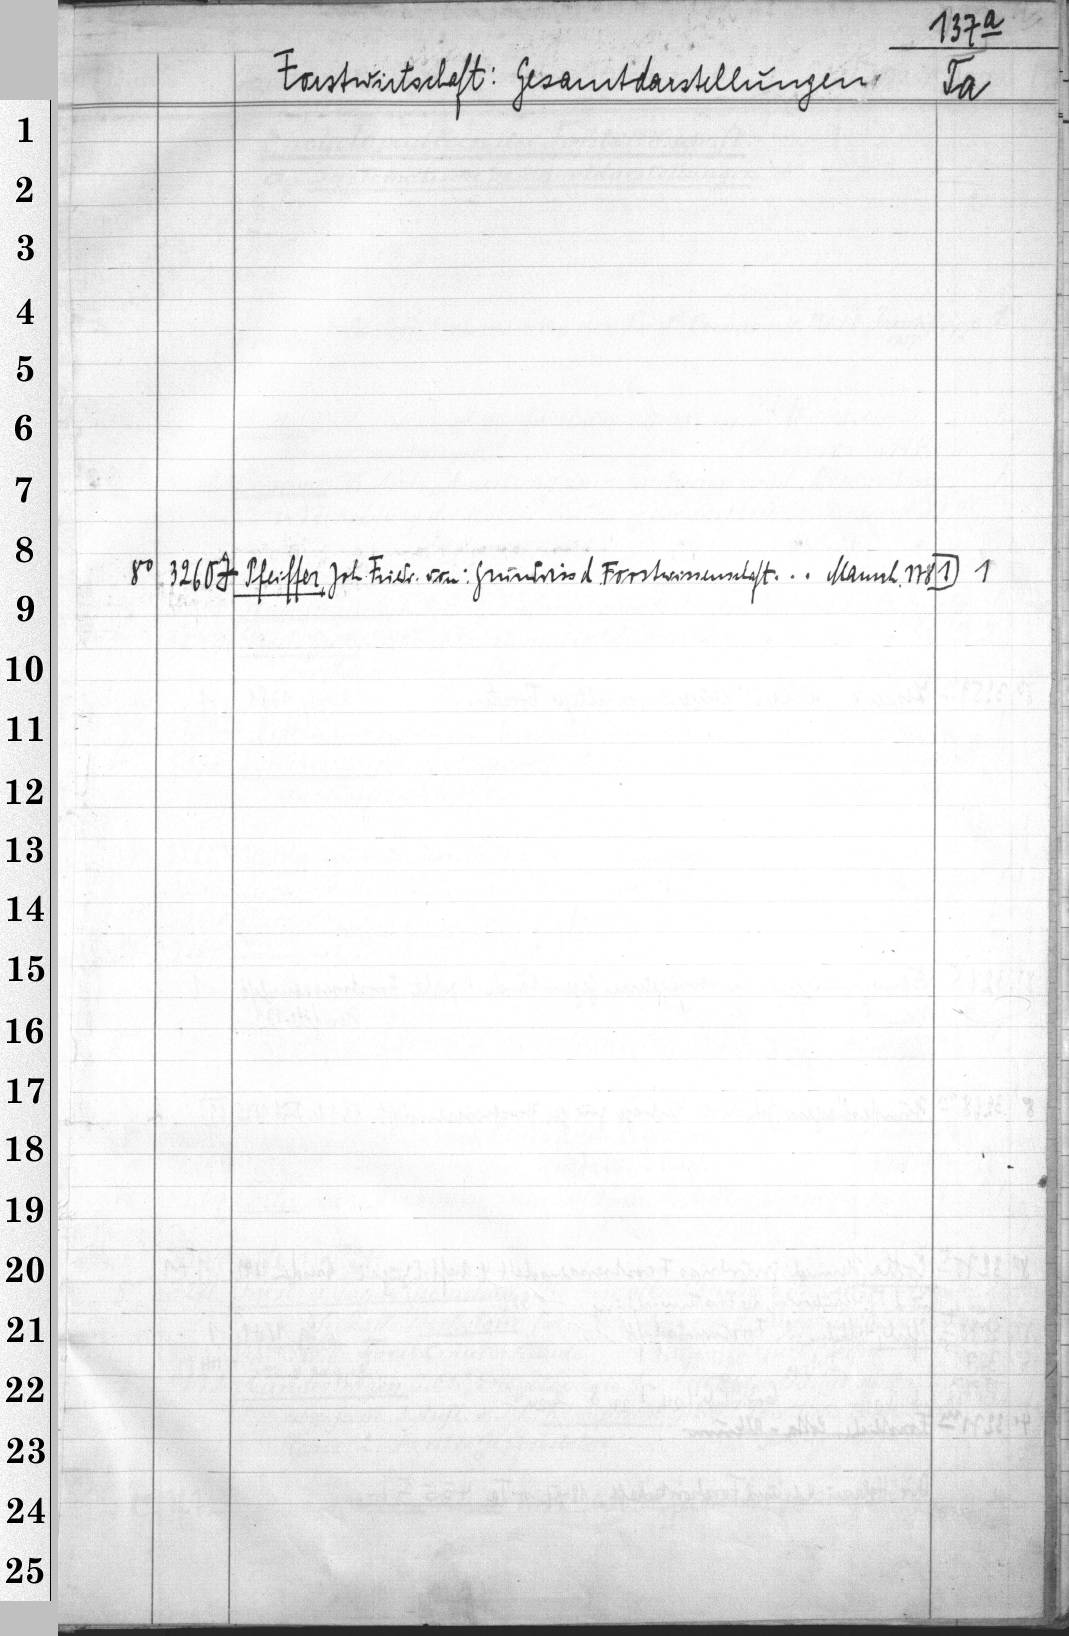 137a
Forstwirtschaft: Gesamtdarstellungen
Ta
1
2
3
4
5
6
7
8
8° 3260 Pfeiffer, Joh. Friedr. von: Grundriss d Forstwissenschaft... Mannh. 1781 1
9
10
11
12
13
14
15
16
17
18
19
20
21
22
23
24
25